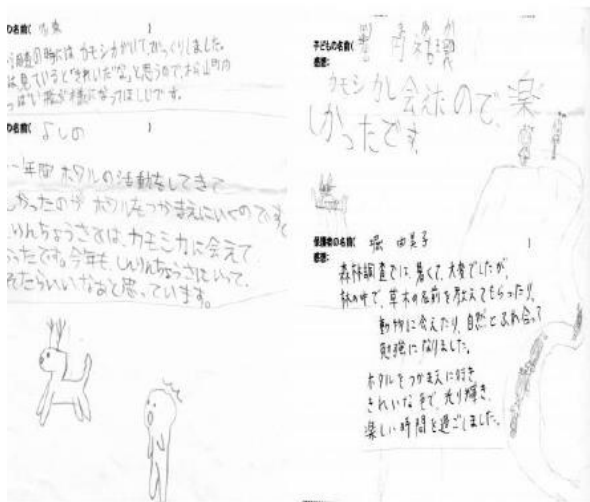 の名前(
の時にはカモシカがいて、びっくりしました。
は見ていると「きれいだな」と思うので、
になってほしいです。
の名前( よしの )
一年間ホタルの活動をしてきて
しかったのがホタルをつかまえにいくのです。
りんちょうさでは、カモシカに会えて
ったです。今年も、しんりんちょうさにいって、
たらいいなあと思っています。
子どもの名前(
感想:
カモシカに会えたので、楽
しかったです。
保護者の名前( 堀 由美子 )
感想:
森林調査では、暑くて、大変でしたが、
林の中で、草木の名前を教えてもらったり、
動物に会えたり、自然とふれ合って
勉強になりました。
ホタルをつかまえに行き
きれいな色で、光り輝き、
楽しい時間を過ごしました。